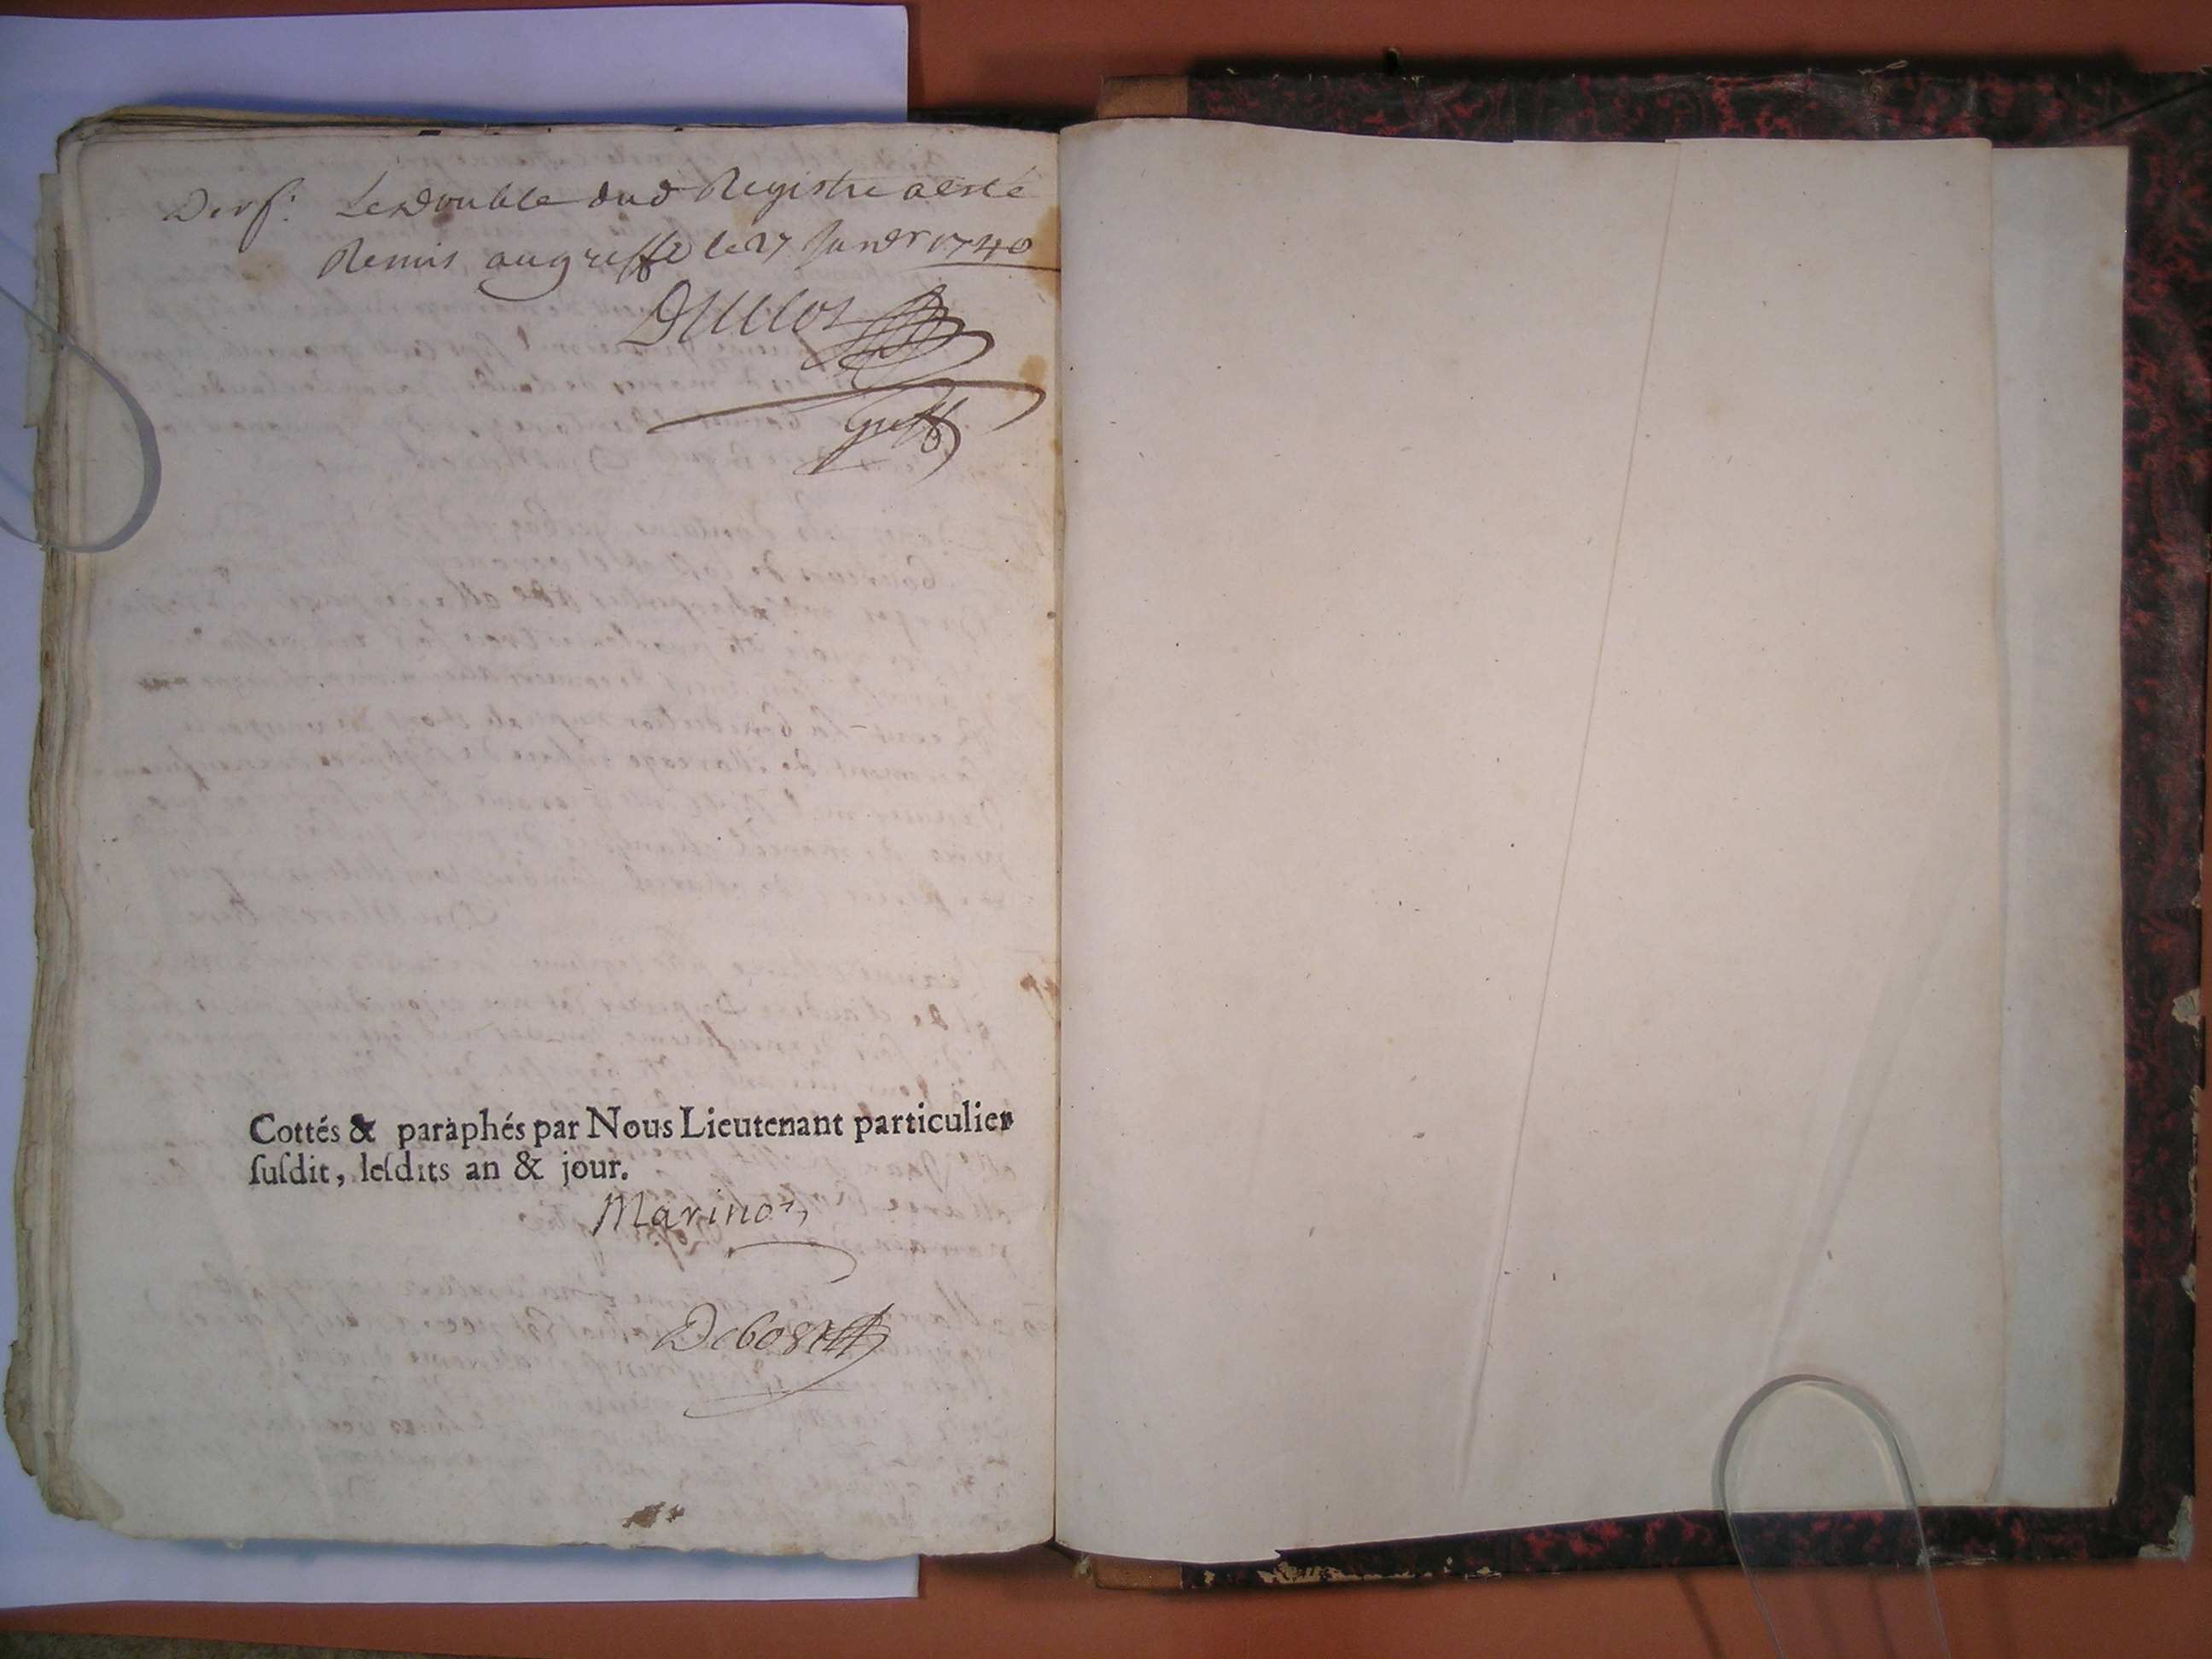 Le Double dud Registre a esté
Remis au greffe le 27 Janvr 1740
Duclos
greff
Cottés & paraphés par Nous Lieutenant particulier
ſuſdit, leſdits an & jour.
Marinot